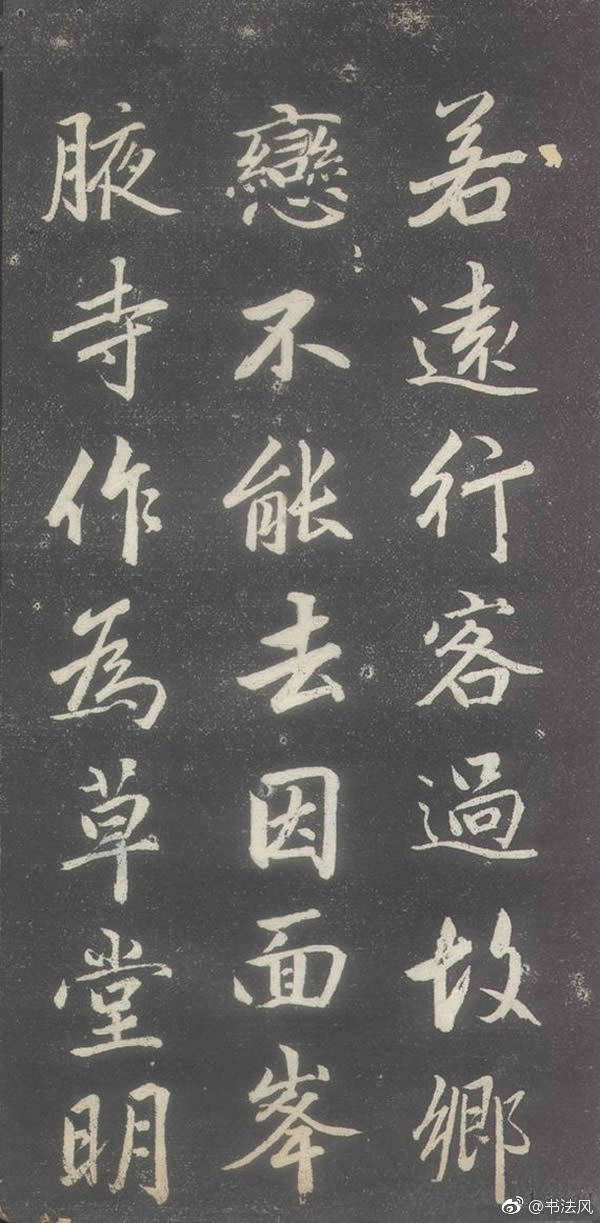 若遠行客過故鄉
戀〻不能去因面峯
腋寺作為草堂明
@书法风